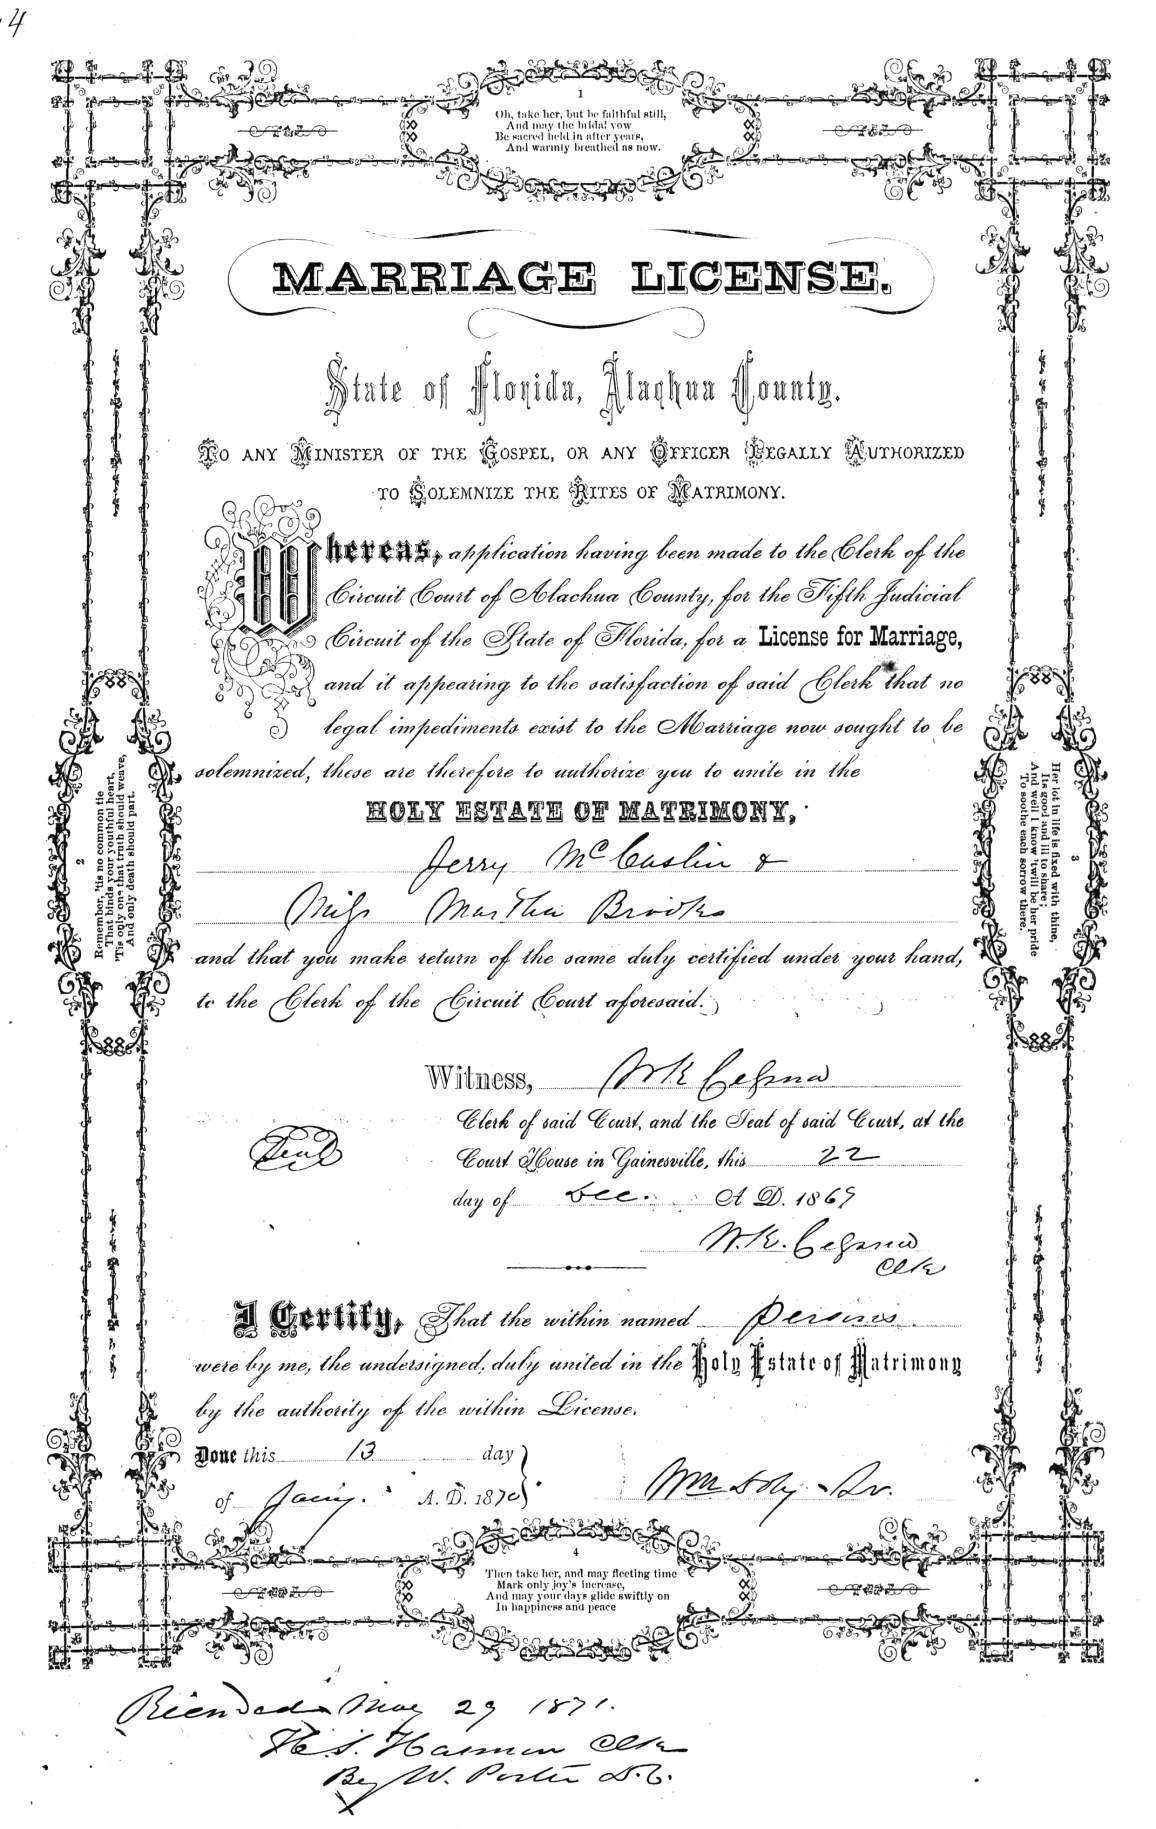 4
1
Oh, take her, but be faithful still,
And may the bridal vow
Be sacred held in after years,
And warmly breathed as now.
MARRIAGE LICENSE.
State of Florida, Alachua County.
TO ANY MINISTER OF THE GOSPEL, OR ANY OFFICER LEGALLY AUTHORIZED
TO SOLEMNIZE THE RITES OF MATRIMONY.
Whereas, application having been made to the Clerk of the
Circuit Court of Alachua County, for the Fifth Judicial
Circuit of the State of Florida, for a License for Marriage,
and it appearing to the satisfaction of said Clerk that no
legal impediments exist to the Marriage now sought to be
solemnized, these are therefore to authorize you to unite in the
HOLY ESTATE OF MATRIMONY,
Jerry McCaslin &
Miss Martha Brooks
and that you make return of the same duly certified under your hand,
to the Clerk of the Circuit Court aforesaid.
2
Remember, 'tis no common tie
That binds your youthful heart,
'Tis only one that truth should weave,
And only death should part.
3
Her lot in life is fixed with thine,
Its good and ill to share;
And well I know 'twill be her pride
To soothe each sorrow there.
Witness, W K Cessna
Clerk of said Court, and the Seal of said Court, at the
Seal
Court House in Gainesville, this 22
day of Dec. A D. 1869
W. K. Cessna
Clk
I Certify, That the within named persons
were by me, the undersigned, duly united in the Holy Estate of Matrimony
by the authority of the within License.
Done this 13 day
of Jany. A. D. 1870
Wm
4
Then take her, and may fleeting time
Mark only joy's increase,
And may your days glide swiftly on
In happiness and peace
Recorded May 29 1871.
H. S. Harmon Clk
By W. Porter D.C.